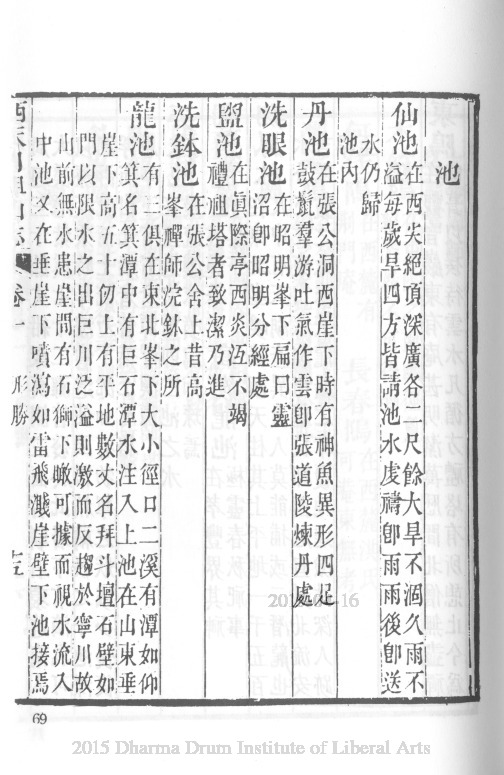 池
仙池在西尖絕頂深廣各二尺餘大旱不涸久雨不
溢每歲旱四方皆請池水虔禱卽雨雨後卽送
水仍歸
池內
丹池在張公洞西崖下時有神魚異形四足
鼓鬣羣游吐氣作雲卽張道陵煉丹處
洗眼池在昭明峯下扁曰靈
沼卽昭明分經處
盥池在眞際亭西炎冱不竭
禮祖塔者致潔乃進
洗鉢池在張公舍上昔高
峯禪師浣鉢之所
龍池有三俱在東北峯下大小徑口二溪有潭如仰
箕名箕潭中有巨石潭水注入上池在山東垂
崖下高五十仞上有平地數丈名拜斗壇石壁如
門以限水之出巨川泛溢則激而反趨於寧川故
山前無水患崖間有石獅下瞰可據而視水流入
中池又在垂崖下噴瀉如雷飛濺崖壁下池接焉
西天目祖山志 卷一 形勝 十五
69
2015 Dharma Drum Institute of Liberal Arts